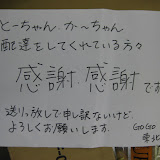 とーちゃん、かーちゃん
配達をしてくれている方々
感謝、感謝です
送りっ放しで申し訳ないけど、
よろしくお願いします。
GO GO
東北